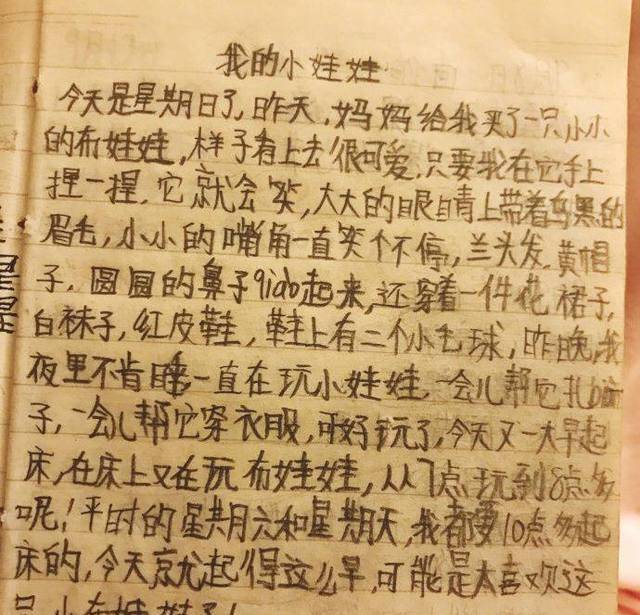 我的小娃娃
今天是星期日了,昨天,妈妈给我买了一只小小
的布娃娃,样子看上去很可爱,只要我在它手上
捏一捏,它就会笑,大大的眼睛上带着乌黑的
眉毛,小小的嘴角一直笑个不停,兰头发,黄帽
子,圆圆的鼻子qiao起来,还穿着一件花裙子,
白袜子,红皮鞋,鞋上有二个小毛球,昨晚,我
夜里不肯睡一直在玩小娃娃,一会儿帮它扎bian
子,一会儿帮它穿衣服,可好玩了,今天又一大早起
床,在床上又在玩布娃娃,从7点玩到8点多
呢!平时的星期六和星期天,我都要10点多起
床的,今天就起得这么早,可能是太喜欢这
只小布娃娃了!